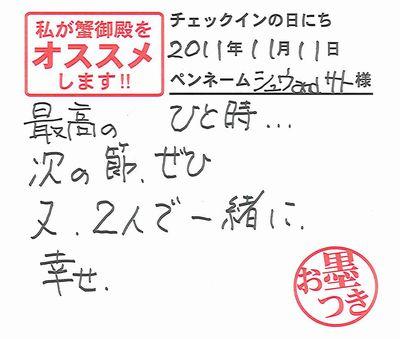 私が蟹御殿を
オススメ
します!!
チェックインの日にち
2011年11月11日
ペンネーム シュウandサト様
最高の ひと時...
次の節、ぜひ
又、2人で一緒に、
幸せ、
お墨つき